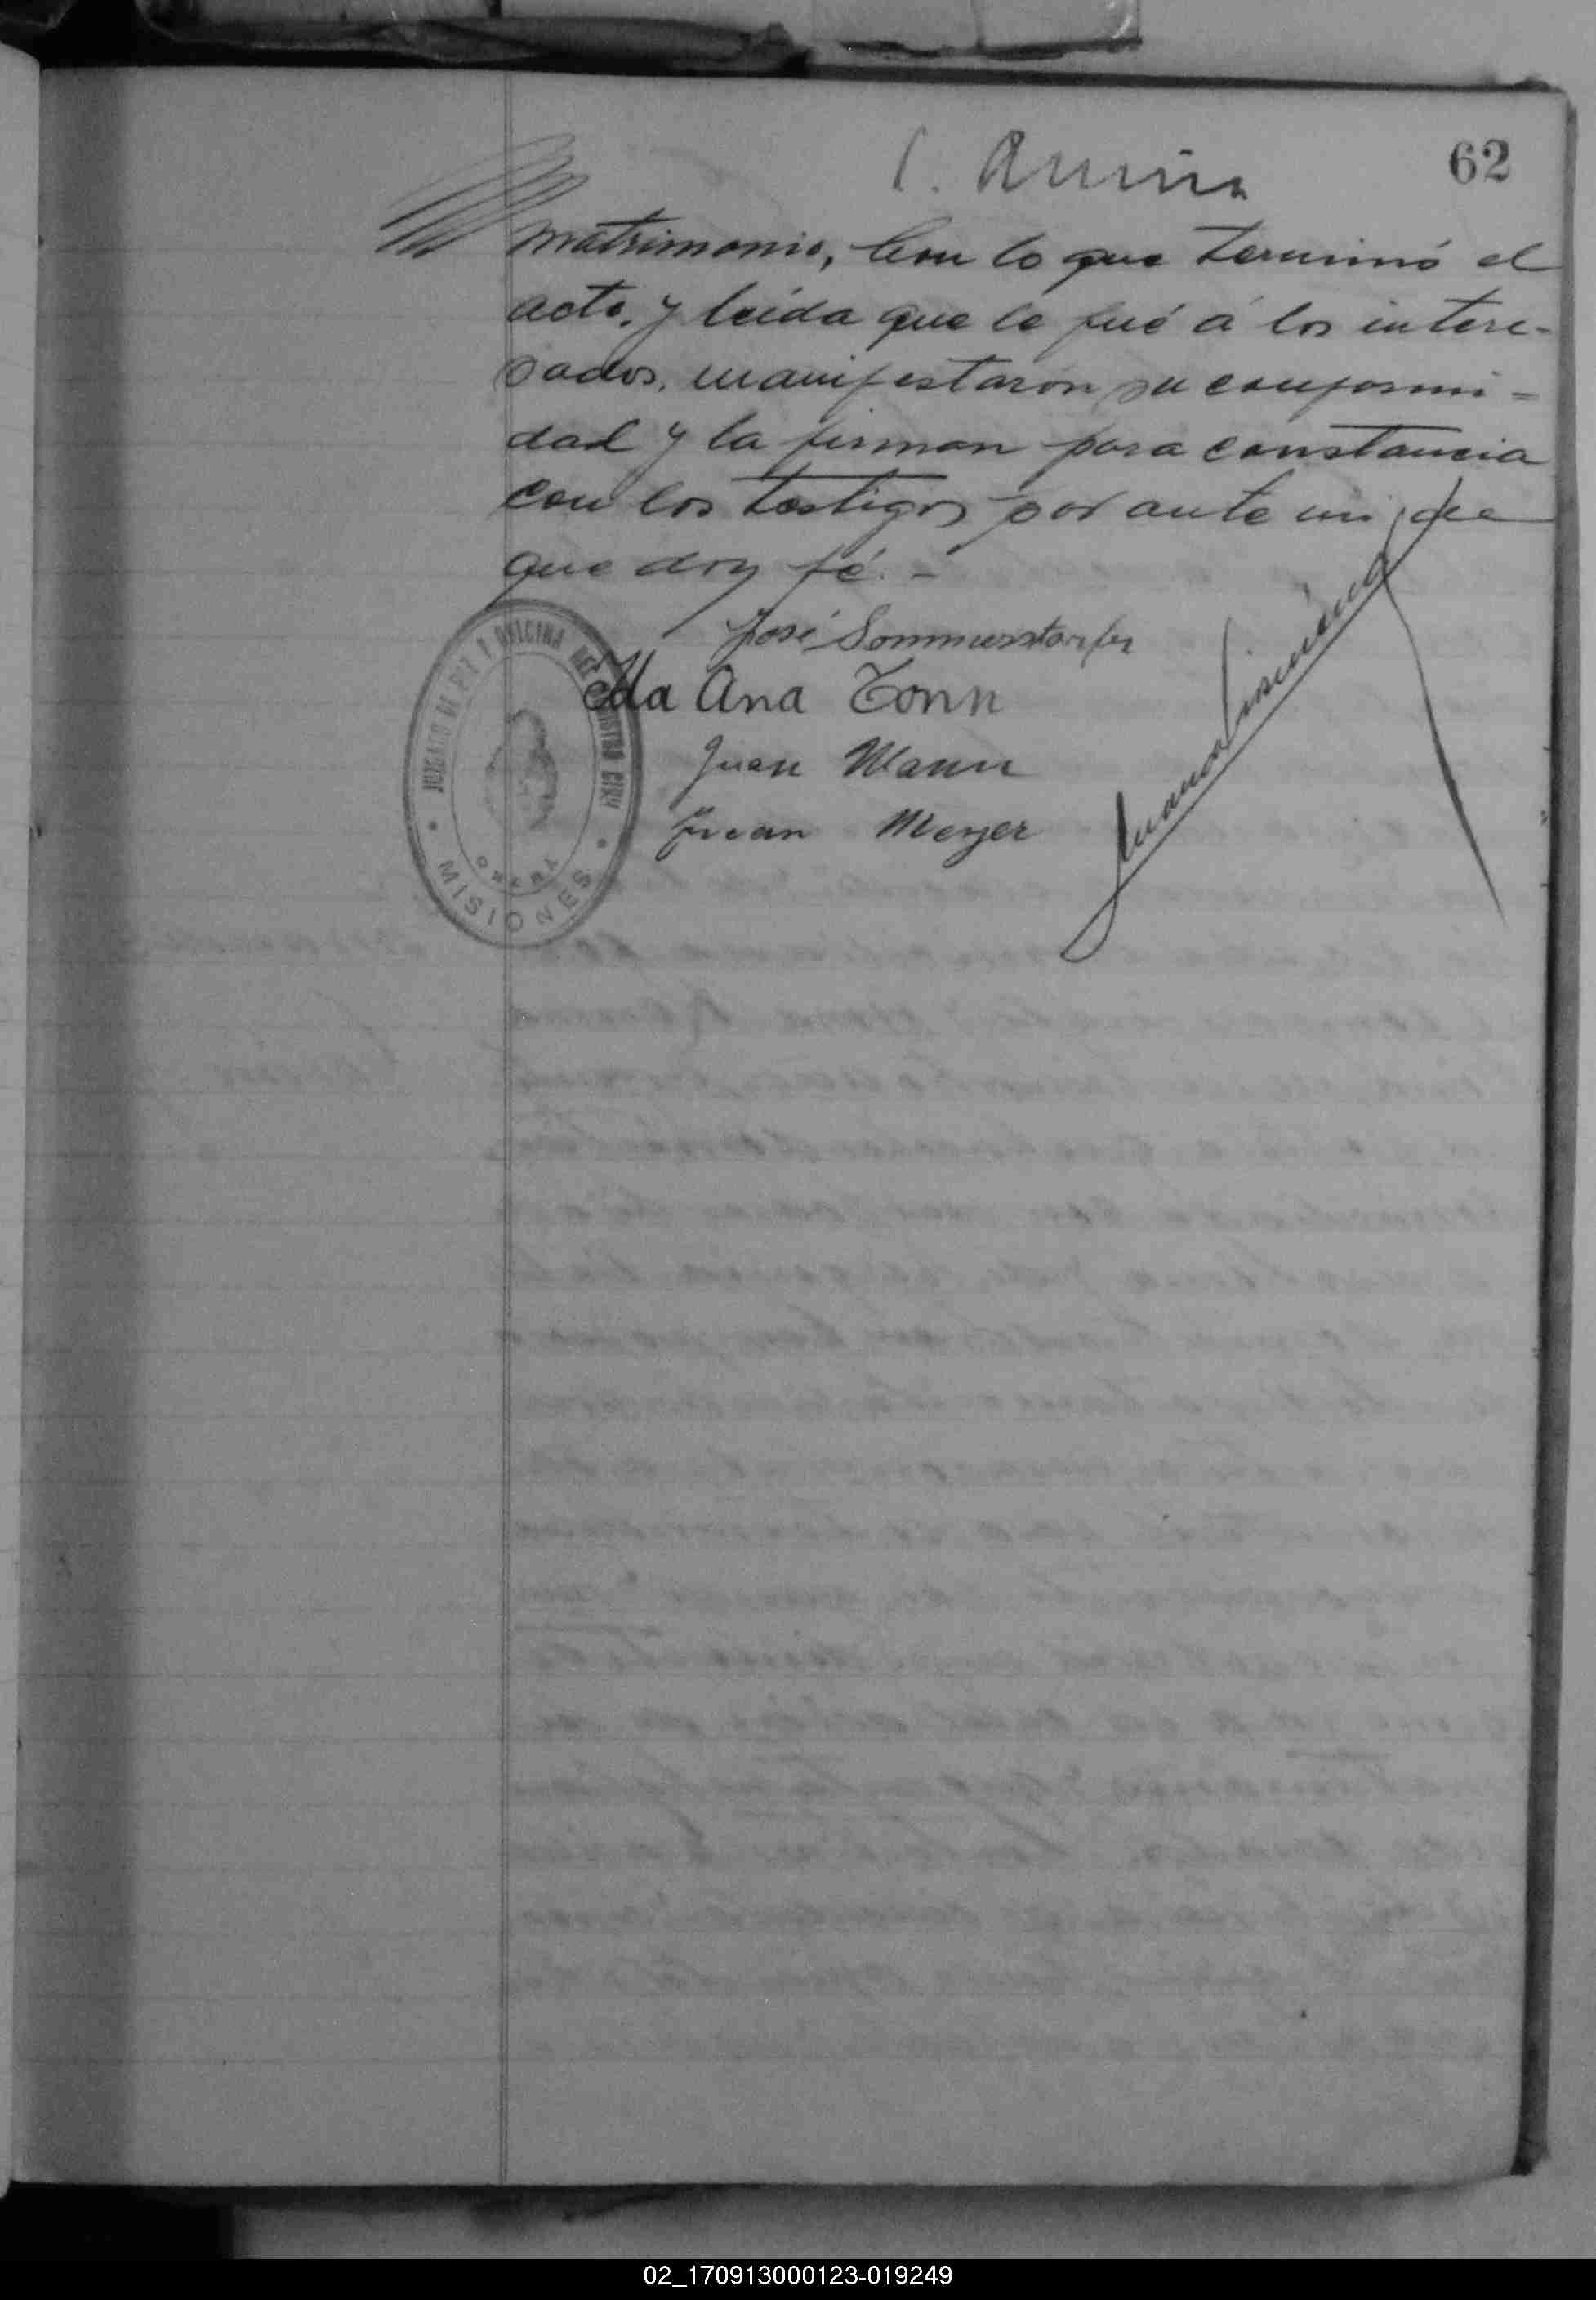 62
matrimonio, Con lo que terminó el
acto, y leida que le fué á los intere-
sados, manifestaron su conformi=
dad y la firman para constancia
con los testigos por ante mi, de
que doy fé. -
José Sommerstorfer
Ida Ana Tonn
Juan Mann
Juan Meyer
JUZGADO DE PAZ Y OFICINA DEL REGISTRO CIVIL
OBERA
MISIONES
02_170913000123-019249